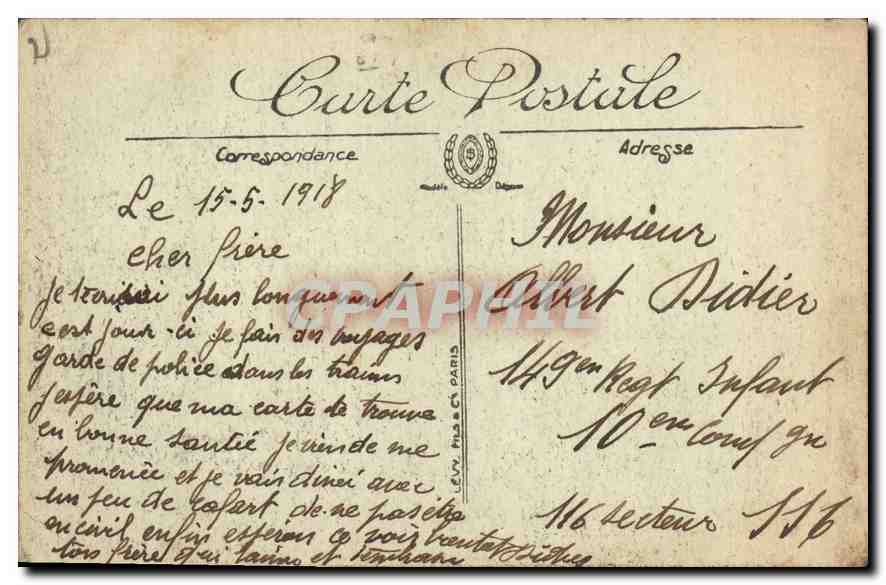 Carte Postale
Correspondance
Adresse
Le 15-5-1918
cher frère
je t'ecrirai plus longuement
c est jour-ci je fais des voyages
garde de police dans les trains
j espère que ma carte te trouve
en bonne santié je viens de me
promenée et je vais dinei avec
un peu de cafart de ne pas être
en civil enfin espérons ce voir bientot
ton frère qui taime et
LEVY FILS & Cie PARIS
Monsieur
Albert Didier
149em Regt Infant
10em Comp gn
116 secteur 116
CPAPHIL